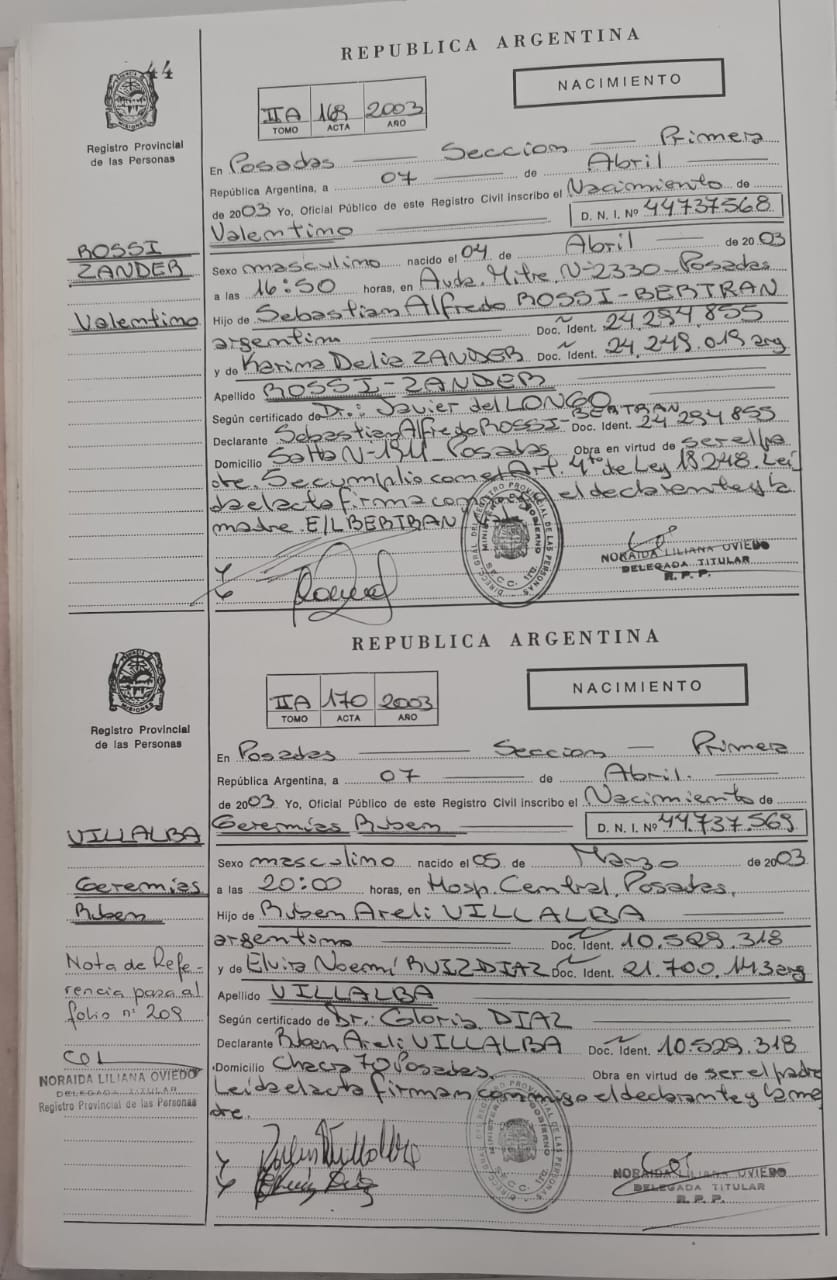 44
REPUBLICA ARGENTINA
NACIMIENTO
IIA 169 2003
TOMO ACTA AÑO
Registro Provincial
de las Personas
En Posadas Seccion Primera
República Argentina, a 07 de Abril
de 2003 Yo, Oficial Público de este Registro Civil inscribo el Nacimiento de
Valentino D. N. I. Nº 44737568
ROSSI
ZANDER
Valentino
Sexo masculino nacido el 04 de Abril de 2003
a las 16:50 horas, en Avda. Mitre. N-2330-Posadas
Hijo de Sebastian Alfredo ROSSI-BERTRAN
argentino Doc. Ident. 24.294.855
y de Karina Delia ZANDER Doc. Ident. 24.249.019 arg
Apellido ROSSI-ZANDER
Según certificado de Dr.: Javier del LONGO
Declarante Sebastian Alfredo ROSSI-BERTRAN Doc. Ident. 24 294 855
Domicilio Salta N-1911-Posadas Obra en virtud de ser el pa
dre. Se cumplio con el Art. 4to de Ley 18248. Leí
da el acta firma con el declarante y la
madre. E/L BERTRAN
DIRECC. GRAL. DEL REGISTRO PROVINCIAL DE LAS PERSONAS
MINISTERIO GOBIERNO
NORAIDA LILIANA OVIEDO
DELEGADA TITULAR
R. P. P.
REPUBLICA ARGENTINA
NACIMIENTO
IIA 170 2003
TOMO ACTA AÑO
Registro Provincial
de las Personas
En Posadas Seccion Primera
República Argentina, a 07 de Abril.
de 2003 Yo, Oficial Público de este Registro Civil inscribo el Nacimiento de
Geremias Ruben D. N. I. Nº 44.737.569
VILLALBA
Geremias
Ruben
Sexo masculino nacido el 05 de Marzo de 2003
a las 20:00 horas, en Hosp. Central, Posadas.
Hijo de Ruben Areli VILLALBA
argentino Doc. Ident. 10.529.318
y de Elvira Noemí RUIZ DIAZ Doc. Ident. 21.700.143 arg
Apellido VILLALBA
Según certificado de Dr.: Gloria DIAZ
Declarante Ruben Areli VILLALBA Doc. Ident. 10.529.318
Domicilio Chacra 70 Posadas. Obra en virtud de ser el padre
Leida el acta firman conmigo el declarante y la ma
dre.
Nota de Refe-
rencia pasa al
folio nº 209
NORAIDA LILIANA OVIEDO
DELEGADA TITULAR
Registro Provincial de las Personas
NORAIDA LILIANA OVIEDO
DELEGADA TITULAR
R. P. P.